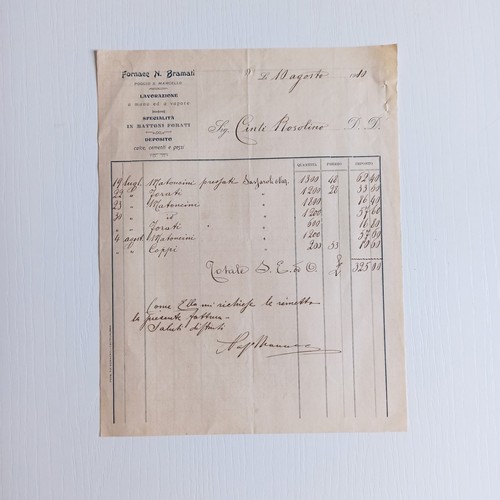 Fornace N. Bramati
LAVORAZIONE
a mano ed a vapore
SPECIALITÀ
IN MATTONI FORATI
DEPOSITO
calce, cementi e gessi
Lì 10 agosto 1910
Sig. Cinto Rosolino D. D.
QUANTITÀ PREZZO IMPORTO
19 lugl. Matoncini pressati 1300 48 62,40
22 " Forati " 1200 28 33,60
23 " Matoncini " 1800
30 " id " 1200 57,60
" " Forati " 600 16,80
4 agost. Matoncini " 1200 57,60
" " Coppi " 200 53 10,60
Totale S. E. & O. 325,00
Come Ella mi richiese le rimetto
la presente fattura
Saluti distinti